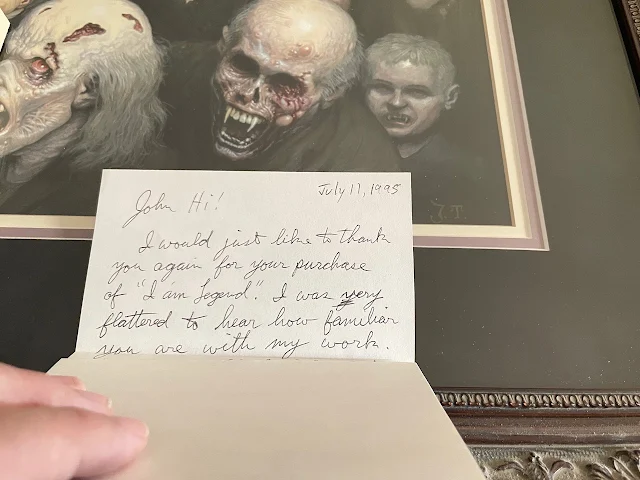 July 17, 1995
John Hi!
I would just like to thank
you again for your purchase
of "I am Legend". I was very
flattered to hear how familiar
you are with my work.